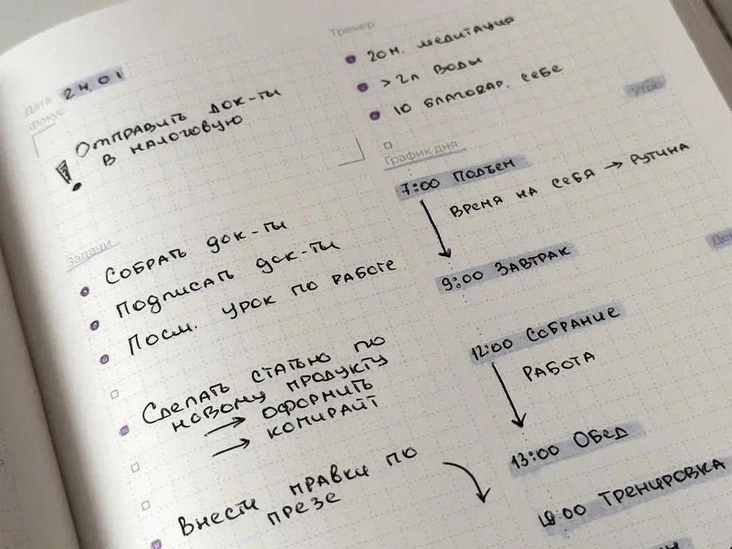 Дата 24.01
Фокус
! Отправить док-ты
в налоговую
Задачи
Собрать док-ты
Подписать док-ты
Посм. урок по работе
Сделать статью по
новому продукту
→ оформить
→ копирайт
Внести правки по
презе
Трекер
20 м. медитация
> 2л воды
10 благодар. себе
Утро
График дня
7:00 Подъем
Время на себя → рутина
9:00 Завтрак
12:00 Собрание
Работа
13:00 Обед
18:00 Тренировка